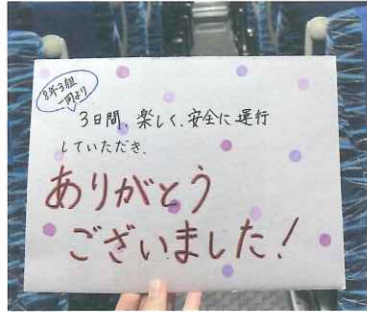 8年3組
一同より
3日間、楽しく、安全に運行
していただき、
ありがとう
ございました!